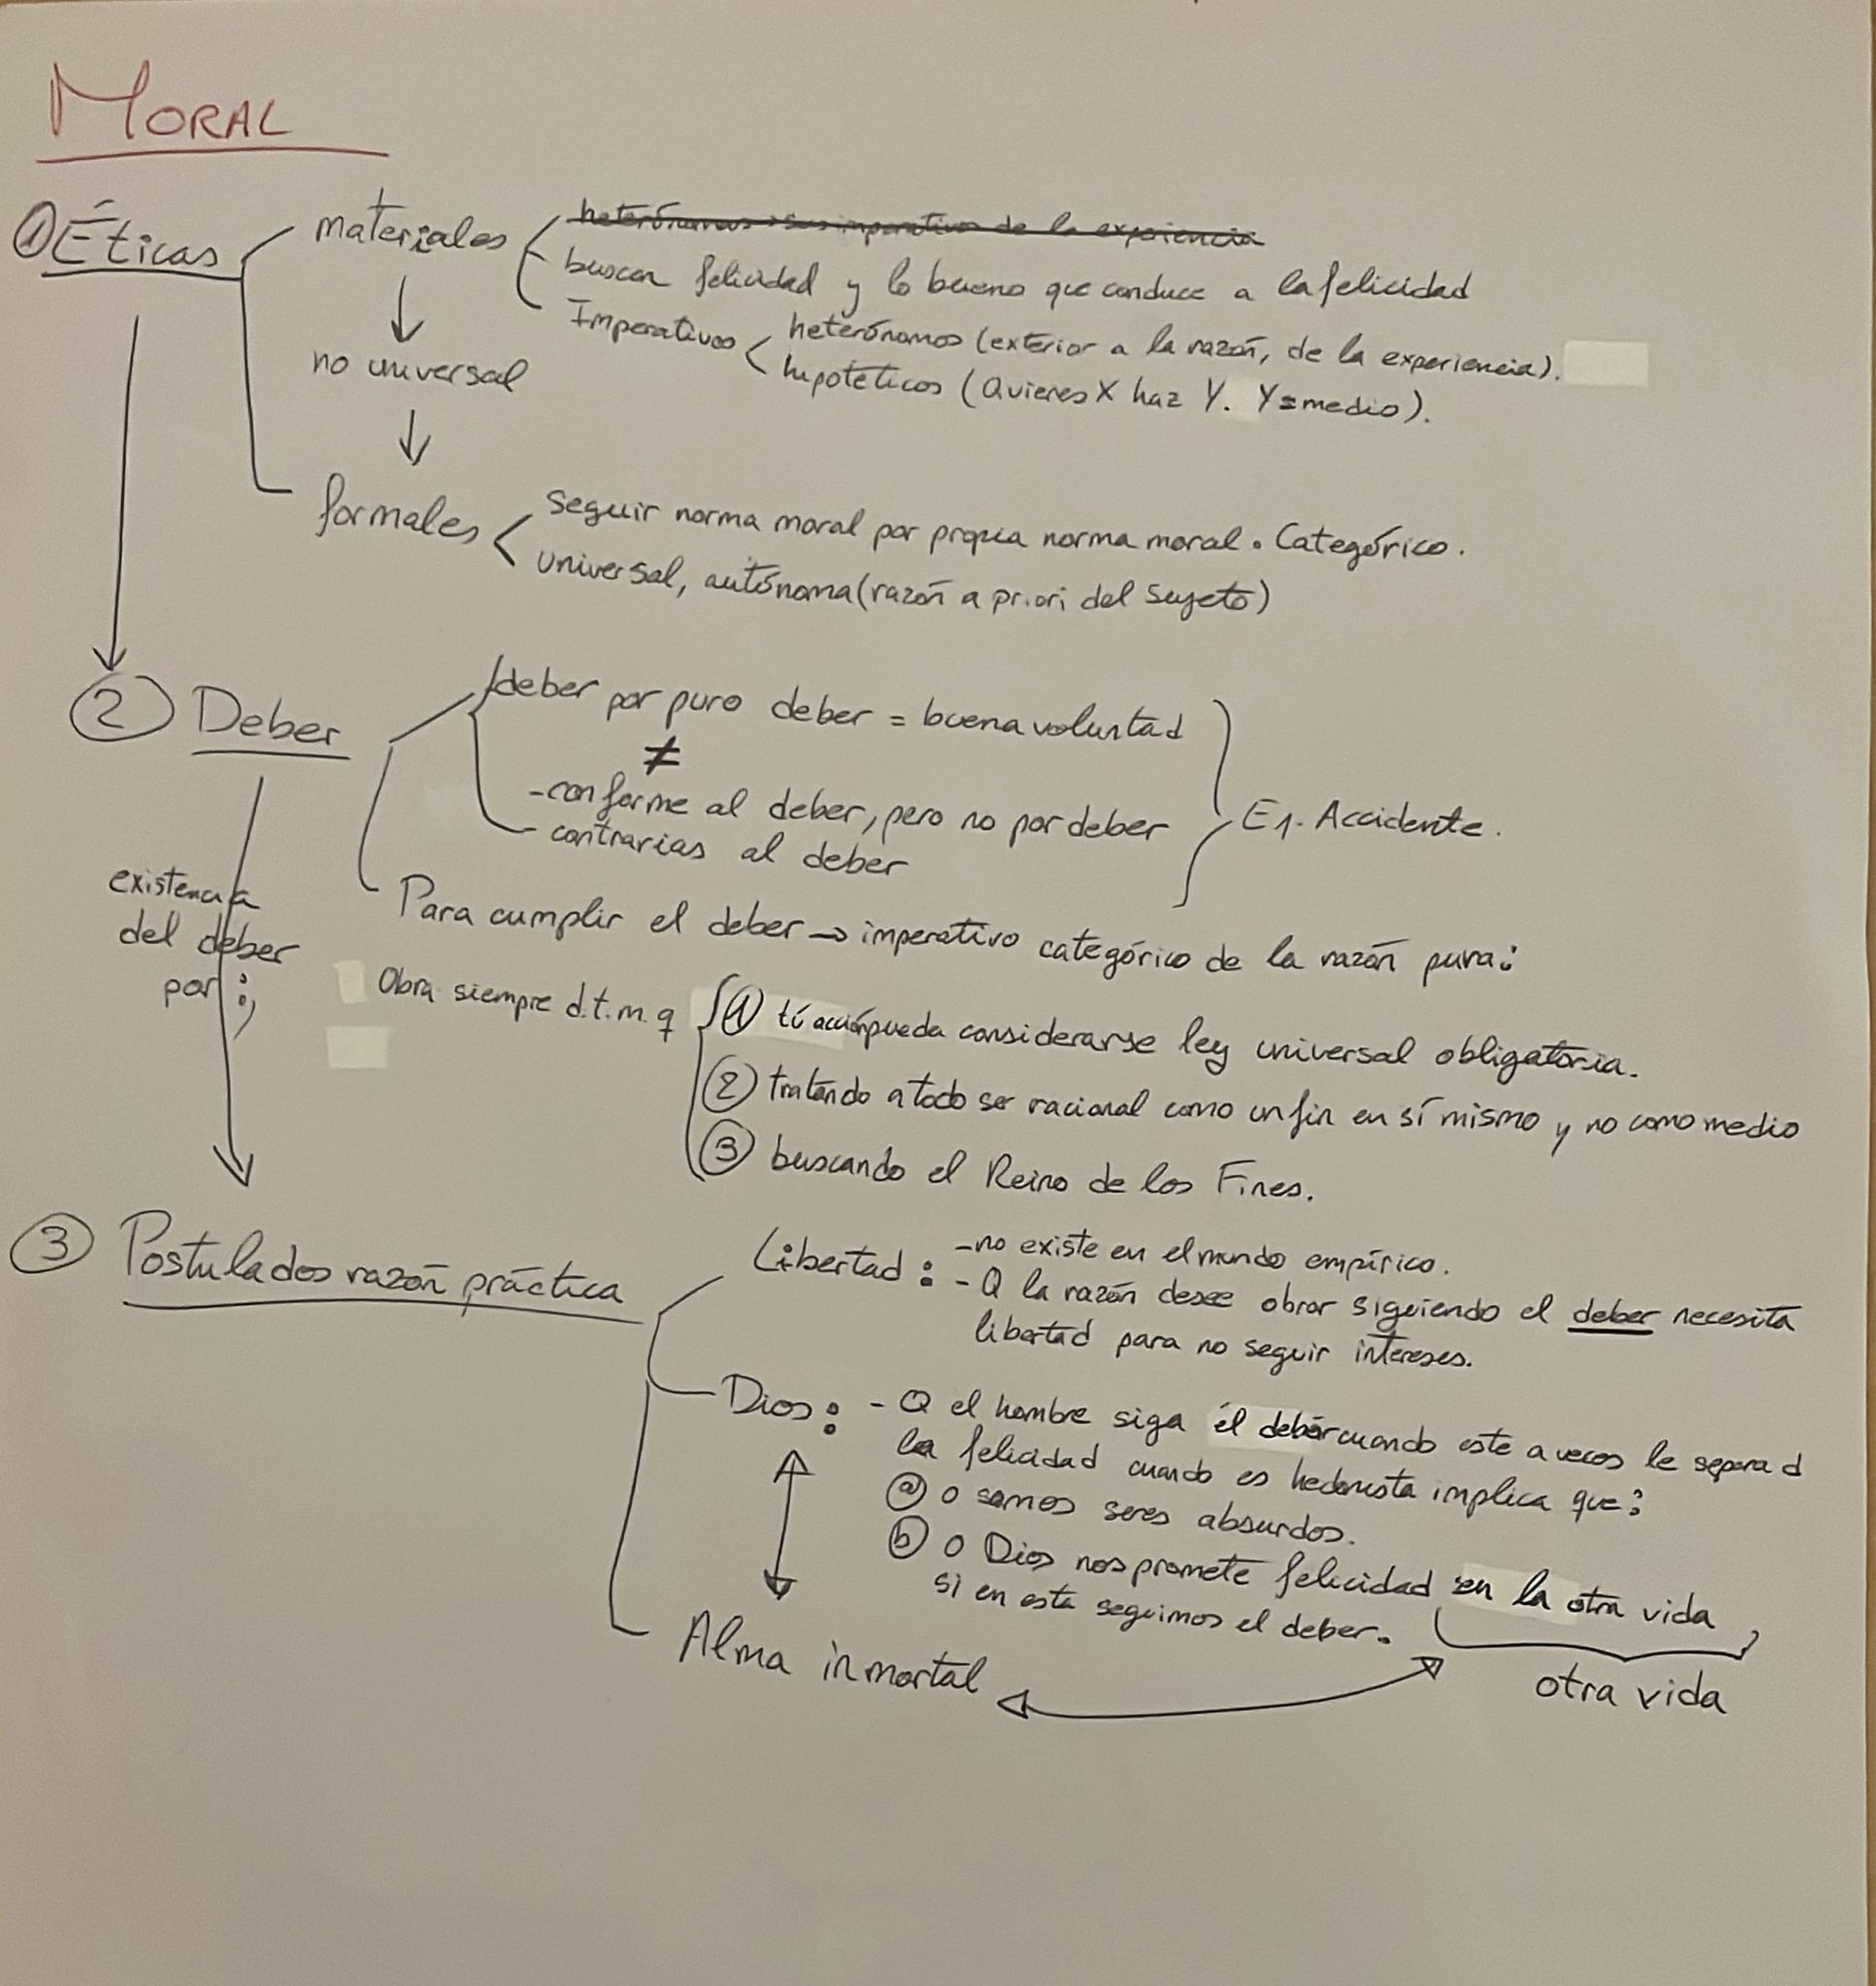 MORAL
① Éticas
materiales
heterónomas → sus imperativos de la experiencia
buscan felicidad y lo bueno que conduce a la felicidad
Imperativos
heterónomos (exterior a la razón, de la experiencia).
hipotéticos (Quieres X haz Y. Y=medio).
no universal
formales
seguir norma moral por propia norma moral. Categórico.
universal, autónoma (razón a priori del sujeto)
② Deber
deber por puro deber = buena voluntad
≠
-conforme al deber, pero no por deber
contrarias al deber
Ej. Accidente.
Para cumplir el deber → imperativo categórico de la razón pura:
existencia
del deber
por:
Obra siempre d.t.m.q
① tú acción pueda considerarse ley universal obligatoria.
② tratando a todo ser racional como un fin en sí mismo y no como medio
③ buscando el Reino de los Fines.
③ Postulados razón práctica
Libertad:
-no existe en el mundo empírico.
- Q la razón desee obrar siguiendo el deber necesita
libertad para no seguir intereses.
Dios: - Q el hombre siga el deber cuando este a veces le separa d
la felicidad cuando es hedonista implica que:
ⓐ o somos seres absurdos.
ⓑ o Dios nos promete felicidad en la otra vida
si en esta seguimos el deber.
Alma inmortal
otra vida